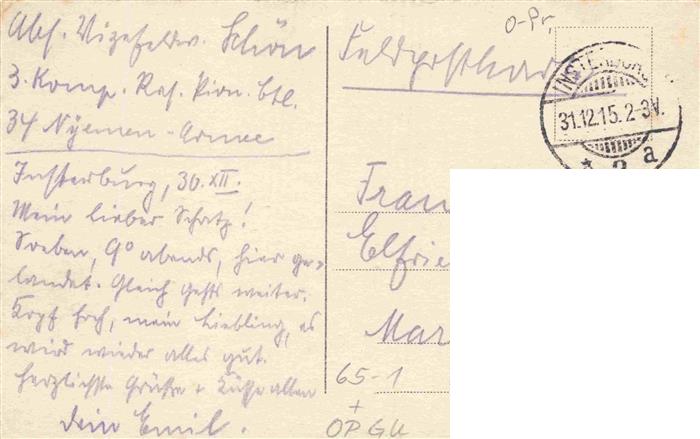 Abs. Vizefeldw. Schön
3. Komp. Res. Pion. Btl.
34 Njemen-Armee
Insterburg, 30.XII.
Mein lieber Schatz!
Soeben, 9° abends, hier ge-
landet. Gleich gehts weiter.
Kopf hoch, mein Liebling, es
wird wieder alles gut.
Herzlichste Grüße + Küsse allen
Dein Emil.
O-Pr.
Feldpostkar
INSTERBURG
31.12.15. 2-3V.
* 2 a
Frau
Elfrie
Mar
65-1
+
OPGU